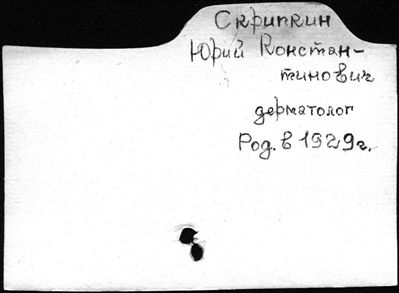 Скрипкин
Юрий Констан-
тинович
дерматолог
Род. в 1929г.